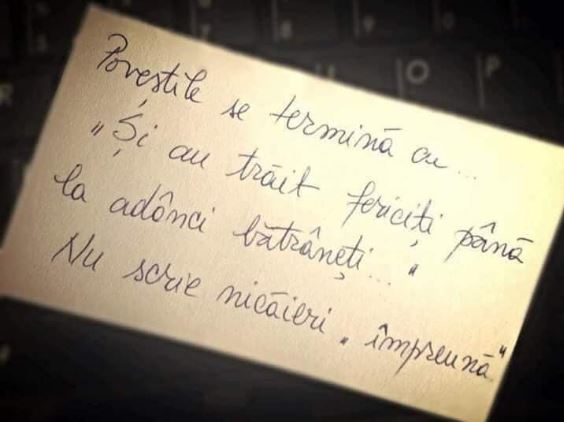 Poveștile se termină cu...
„Și au trăit fericiți până
la adânci bătrâneți..."
Nu scrie nicăieri „împreună"